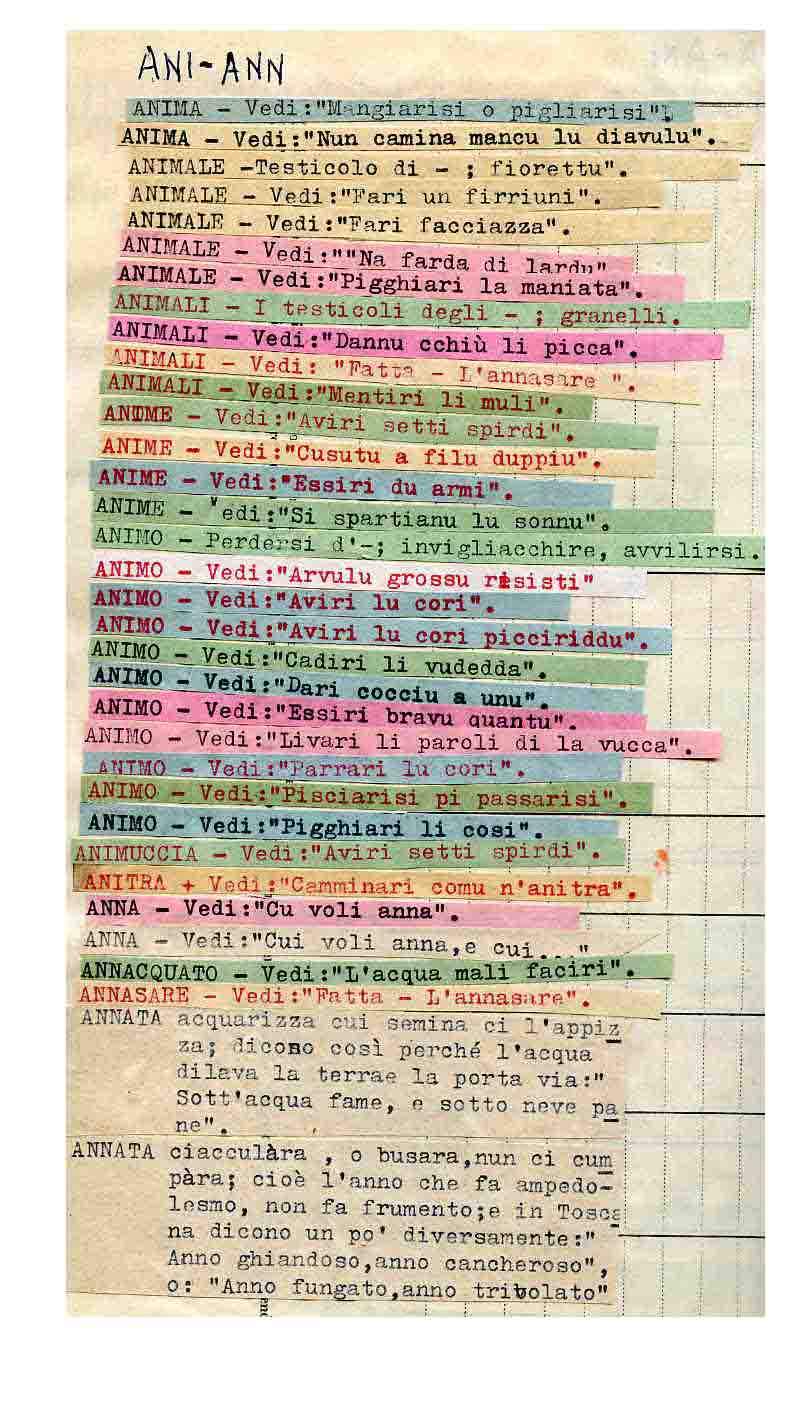 ANI-ANN
ANIMA - Vedi:"Mangiarisi o pigliarisi".
ANIMA - Vedi:"Nun camina mancu lu diavulu".
ANIMALE -Testicolo di - ; fiorettu".
ANIMALE - Vedi:"Fari un firriuni".
ANIMALE - Vedi:"Fari facciazza".
ANIMALE - Vedi:""Na farda di lardu"
ANIMALE - Vedi:"Pigghiari la maniata".
ANIMALI - I testicoli degli - ; granelli.
ANIMALI - Vedi:"Dannu cchiù li picca".
ANIMALI - Vedi: "Fatta - L'annasare ".
ANIMALI - Vedi:"Mentiri li muli".
ANIME - Vedi:"Aviri setti spirdi".
ANIME - Vedi:"Cusutu a filu duppiu".
ANIME - Vedi:"Essiri du armi".
ANIME - Vedi:"Si spartianu lu sonnu".
ANIMO - Perdersi d'-; invigliacchire, avvilirsi.
ANIMO - Vedi:"Arvulu grossu risisti"
ANIMO - Vedi:"Aviri lu cori".
ANIMO - Vedi:"Aviri lu cori picciriddu".
ANIMO - Vedi:"Cadiri li vudedda".
ANIMO - Vedi:"Dari cocciu a unu".
ANIMO - Vedi:"Essiri bravu quantu".
ANIMO - Vedi:"Livari li paroli di la vucca".
ANIMO - Vedi:"Parrari lu cori".
ANIMO - Vedi:"Pisciarisi pi passarisi".
ANIMO - Vedi:"Pigghiari li cosi".
ANIMUCCIA - Vedi:"Aviri setti spirdi".
ANITRA + Vedi:"Camminari comu n'anitra".
ANNA - Vedi:"Cu voli anna".
ANNA - Vedi:"Cui voli anna,e cui... "
ANNACQUATO - Vedi:"L'acqua mali faciri".
ANNASARE - Vedi:"Fatta - L'annasare".
ANNATA acquarizza cui semina ci l'appiz
za; dicono così perché l'acqua
dilava la terrae la porta via:"
Sott'acqua fame, e sotto neve pa
ne".
ANNATA ciacculàra , o busara,nun ci cum
pàra; cioè l'anno che fa ampedo-
lesmo, non fa frumento;e in Tosca
na dicono un po' diversamente:"
Anno ghiandoso,anno cancheroso",
o: "Anno fungato,anno tribolato"